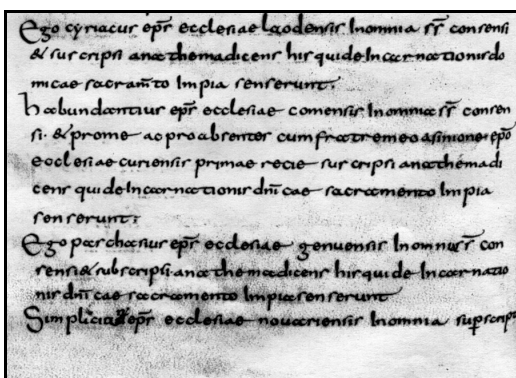 Ego cyriacus epr̄ ecclesiae laodensis Inomnia s͞s consensi
& suscripsi anathemadicens his quide Incarnationis do
micae sacram̄to Impia senserunt.
habundantius epr̄ ecclesiae comensis Inomnia s͞s consen
si. & prome ac pro absente cumfratremeo asinione ep̄o
ecclesiae curiensis primae recie suscripsi anathemadi
cens quide Incarnationis dn̄icae sacramento Impia
senserunt:
Ego paschasius epr̄ ecclesiae genuensis Inomnia s͞s con
sensi & subscripsi anathemadicens hisquide Incarnatio
nis dn̄icae sacramento Impia senserunt
Simplicia epr̄ ecclesiae novariensis Inomnia superscript